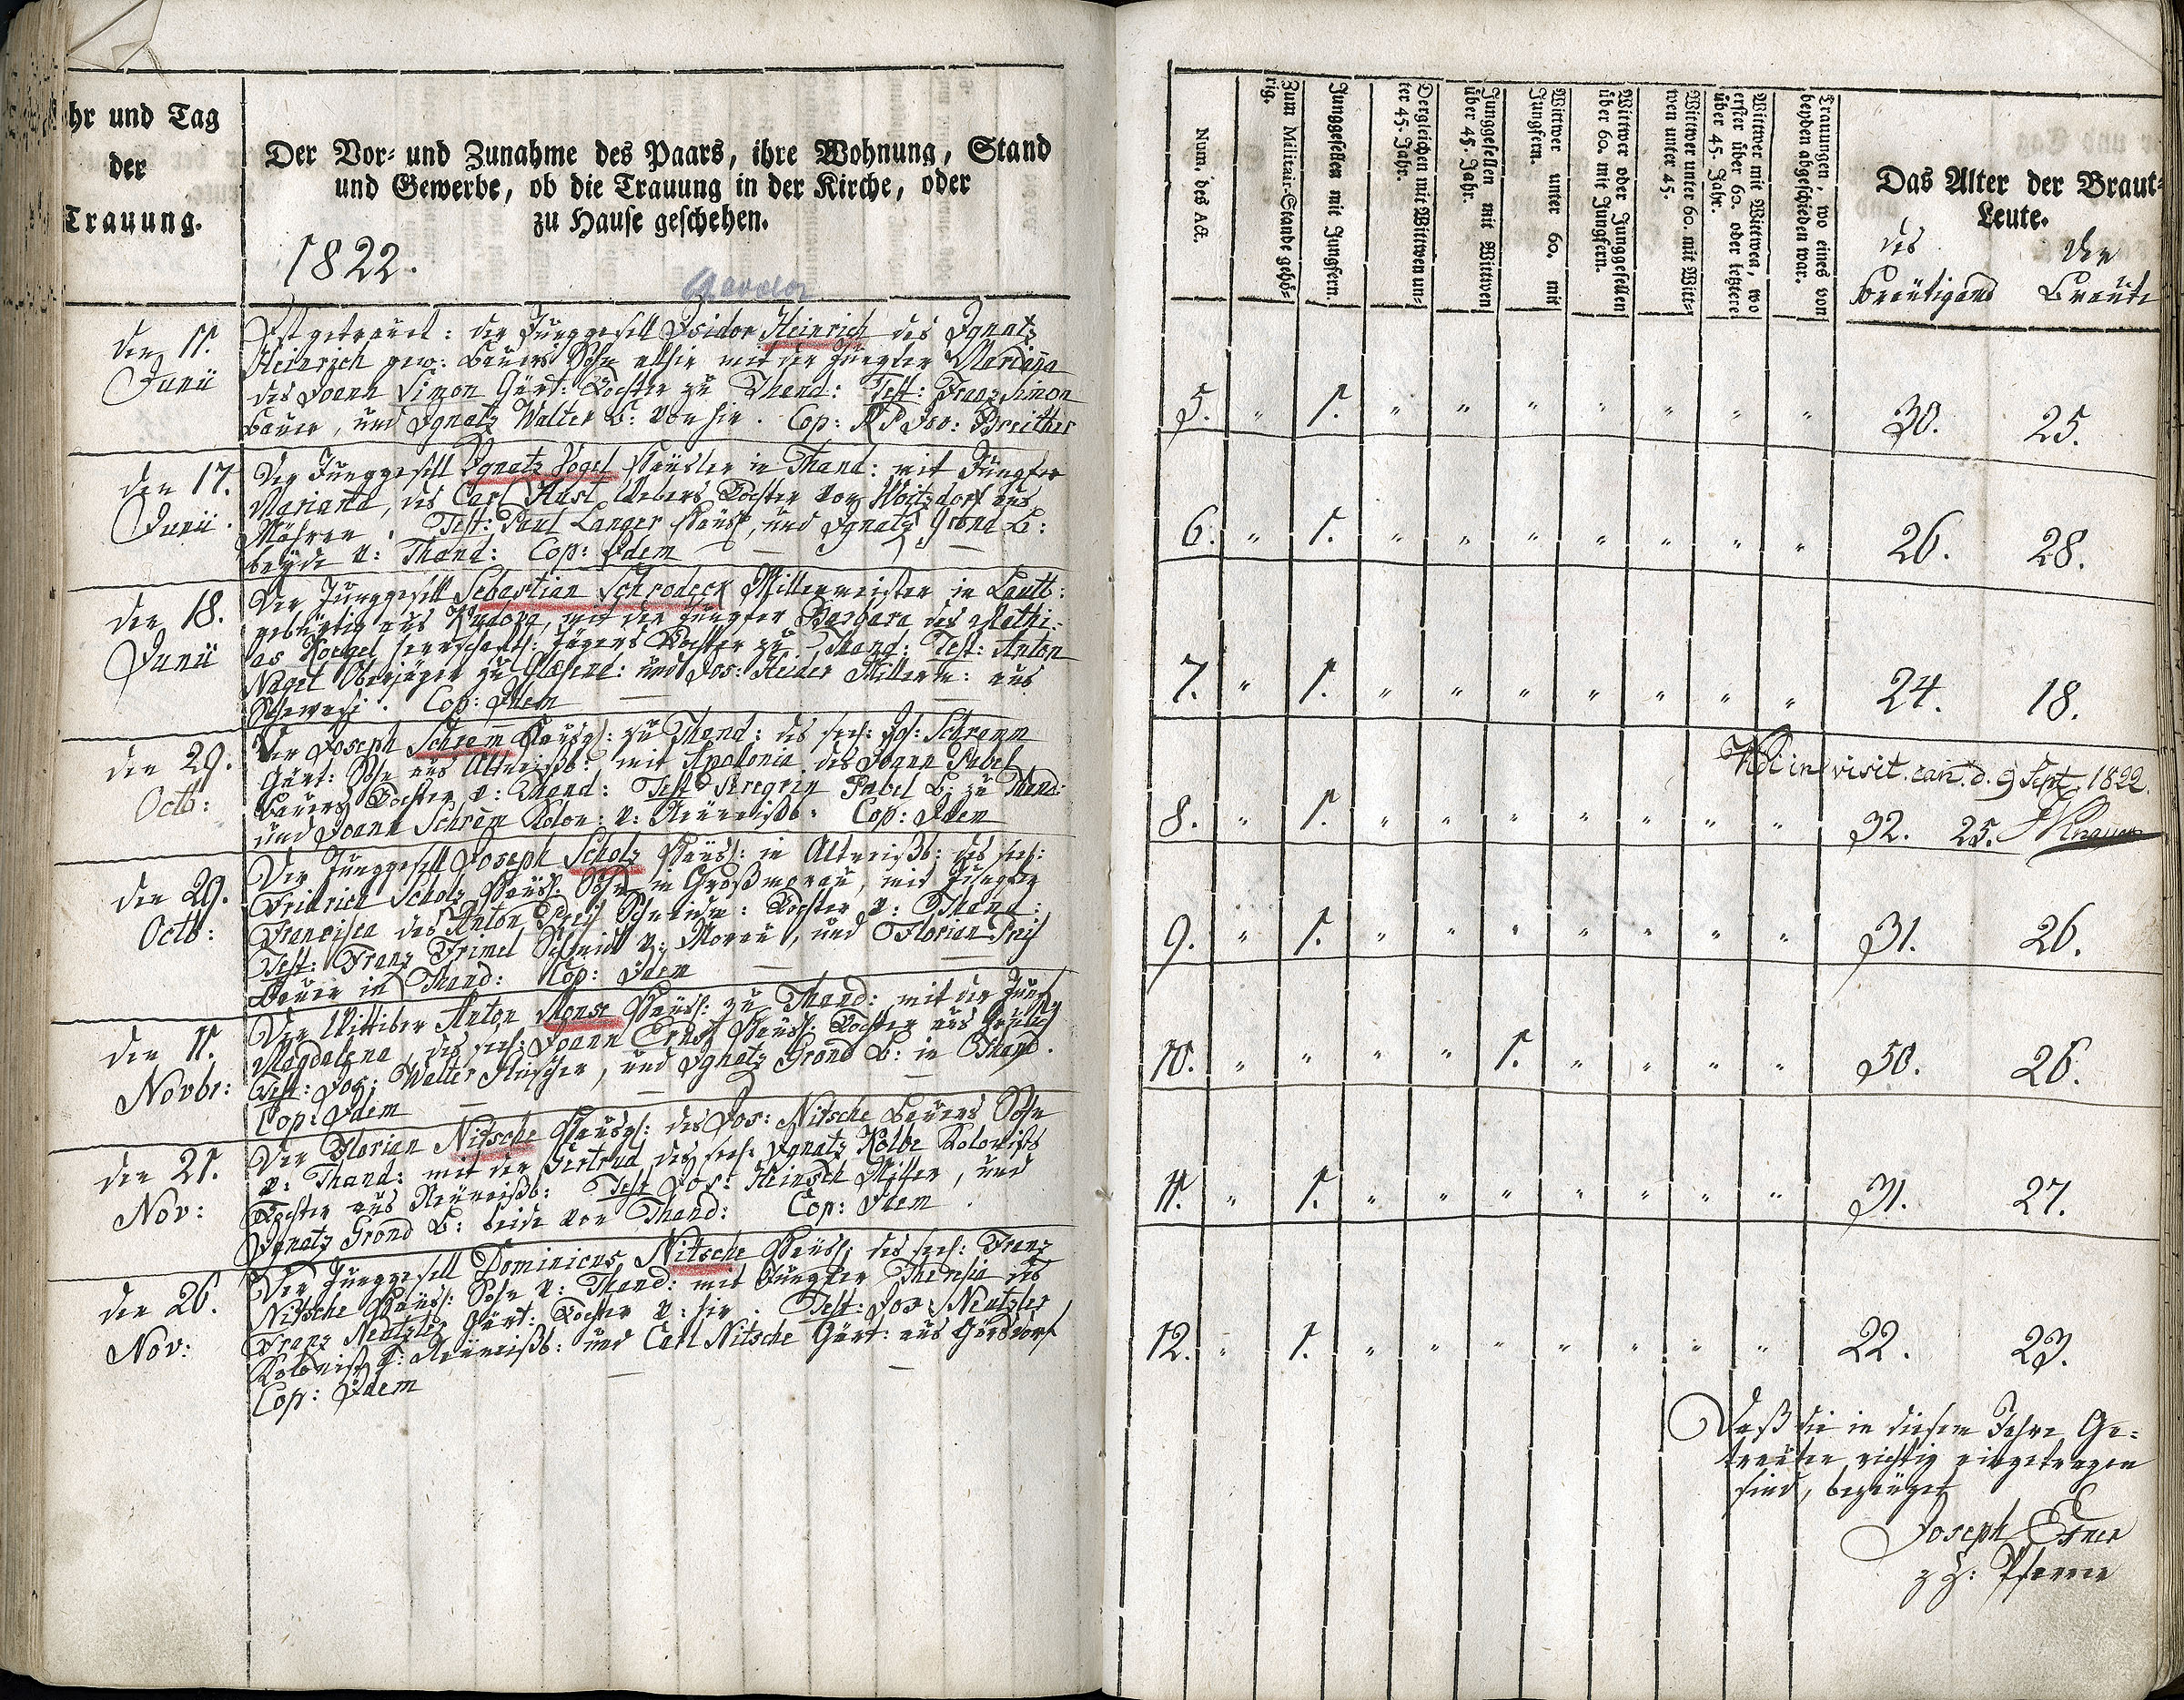 hr und Tag
der
Trauung.
Der Vor- und Zunahme des Paars, ihre Wohnung, Stand
und Gewerbe, ob die Trauung in der Kirche, oder
zu Hause geschehen.
1822.
den 11.
Junii
Ist getrauet: der Junggesell Isidor Heinrich des Ignatz
Heinrich gew: Bauers Sohn allhie mit der Jungfer Mariana
des Joann Simon Gärt: Tochter zu Thand: Test: Franz Simon
Bauer, und Ignatz Walter B: von hie. Cop: Breither
den 17.
Junii.
Der Junggesell Ignatz Vogel Häusler in Thand: mit Jungfer
Mariana, des Carl Webers Tochter von Woitzdorf aus
Mähren. Test: Paul Langer Häusl, und Ignatz Grond B:
beyde v: Thand: Cop: Idem
den 18.
Junii
Der Junggesell Sebastian Schrodeck Müllermeister in
gebürtig aus mit der Jungfer Barbara des Mathi-
as herrschaftl: Jägers Tochter zu Thand: Test: Anton
Nagel Oberjäger zu und Jos: Heider Müllerm: aus
Cop: Idem
den 29.
Octb:
Der Joseph Schrem Häusl: zu Thand: des seel: Jos: Schramm
Gärt: Sohn aus Altweißb: mit Apolonia des Joann Pabel
Bauers Tochter v: Thand: Test Peregrin Pabel B: zu Thand:
und Joann Schrem Kolon: v: Neuweißb: Cop: Idem
den 29.
Octb:
Der Junggesell Joseph Scholz Häusl: in Altweißb: des seel:
Fridrich Scholz Häusl: Sohn in Großmorau, mit Jungfer
Francisca des Anton Schneider: Tochter v: Thand:
Test: Franz Frimel Schmidt v: Morau, und Florian
Bauer in Thand: Cop: Idem
den 11.
Novbr:
Der Wittiber Anton Monse Häusl: zu Thand: mit der Jungf
Magdalena, des seel: Joann Ernst Häusl: Tochter aus
Test: Jos: Walter und Ignatz Grond B: in Thand.
Cop: Idem
den 21.
Nov:
Der Florian Nitsche Häusl: des Jos: Nitsche Bauers Sohn
v: Thand: mit der Gertrud des seel: Ignatz Kolbe Kolonists
Tochter aus Neuweißb: Test Jos: Heinsch Müller, und
Ignatz Grond B: beide von Thand: Cop: Idem.
den 26.
Nov:
Der Junggesell Dominicus Nitsche Häusl: des seel: Franz
Nitsche Häusl: Sohn v: Thand: mit Jungfer Theresia des
Franz Neutzler Gärt: Tochter v: hie. Test: Jos: Neutzler
Kolonist v: Neuweißb: und Carl Nitsche Gärt: aus Görsdorf
Cop: Idem
Num. des Act.
Zum Militair-Stande gehö-
rig.
Junggesellen mit Jungfern.
Dergleichen mit Wittwen un-
ter 45. Jahr.
Junggesellen mit Wittwen
über 45. Jahr.
Wittwer unter 60. mit
Jungfern.
Wittwer oder Junggesellen
über 60. mit Jungfern.
Wittwer unter 60. mit Witt-
wen unter 45.
Wittwer mit Wittwen, wo
erster über 60. oder letztere
über 45. Jahr.
Trauungen, wo eines von
beyden abgeschieden war.
Das Alter der Braut-
Leute.
des
Bräutigams
der
Braute
5. " 1. " " " " " " " 30. 25.
6. " 1. " " " " " " " 26. 28.
7. " 1. " " " " " " " 24. 18.
Vidi in visit. can. d. 9 Sept. 1822.
8. " 1. " " " " " " " 32. 25.
9. " 1. " " " " " " " 31. 26.
10. " " " " 1. " " " " 50. 26.
11. " 1. " " " " " " " 31. 27.
12. " 1. " " " " " " " 22. 23.
Daß die in diesem Jahre Ge-
trauten richtig eingetragen
sind, bezeuget
Joseph Exner
z Z: Pfarrer